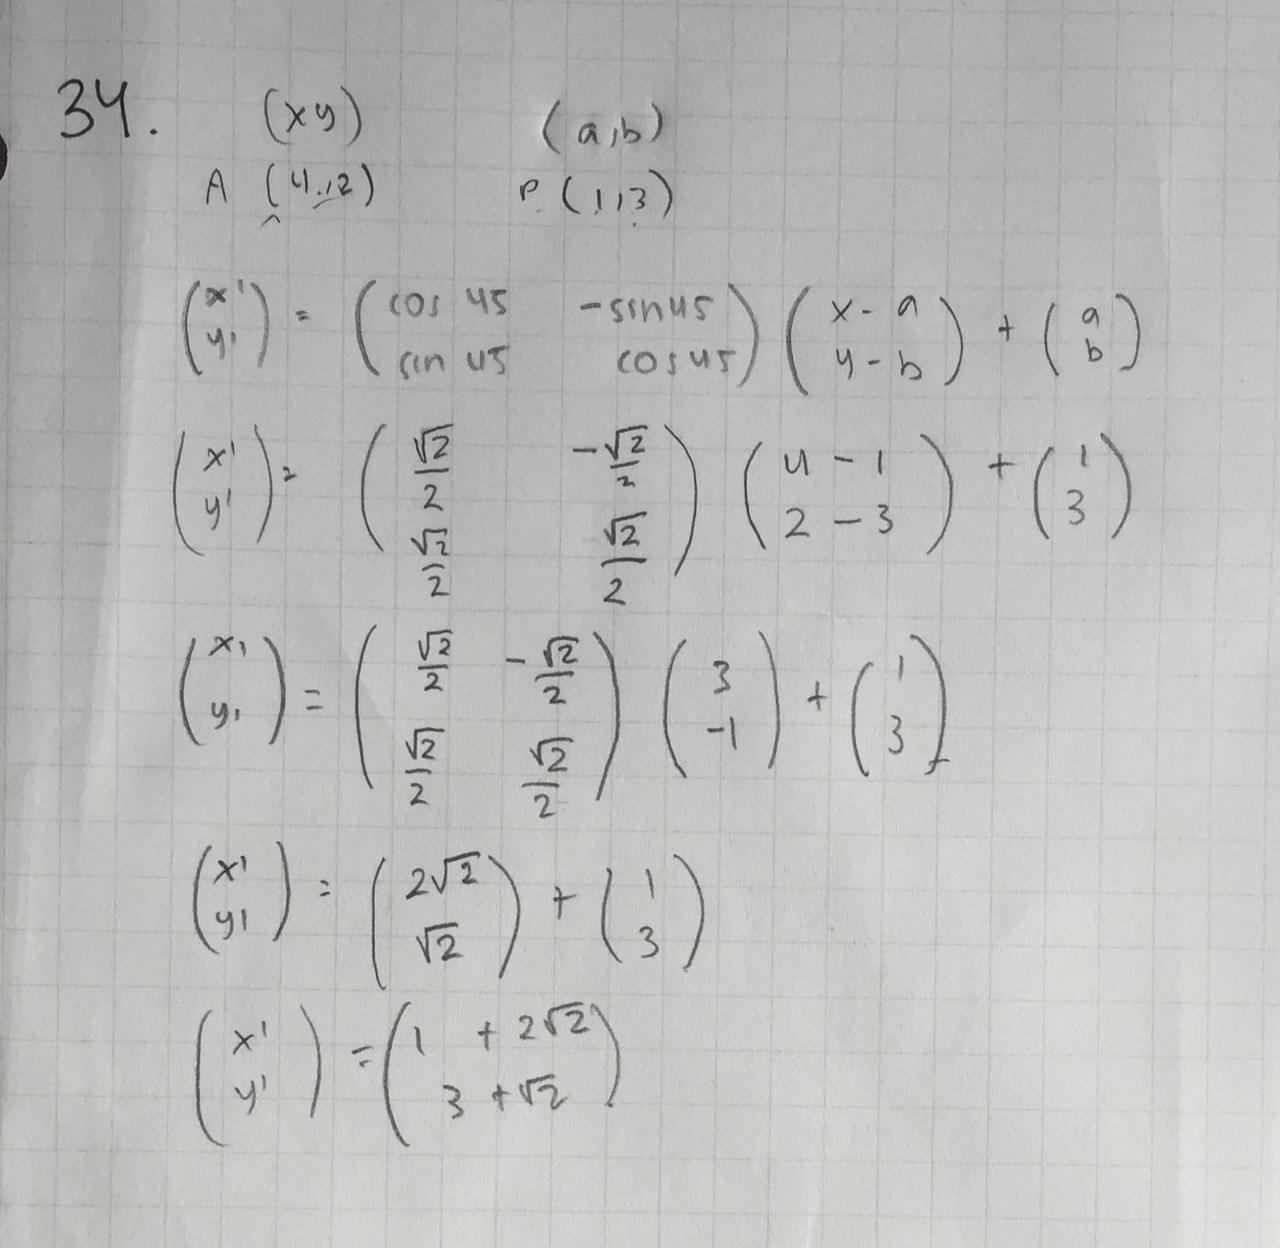 34. (x y) (a, b)
A (4, 2) P (1, 3)
(x' y') = (cos 45 -sin 45 sin 45 cos 45) (x - a y - b) + (a b)
(x' y') = (√2/2 -√2/2 √2/2 √2/2) (4 - 1 2 - 3) + (1 3)
(x' y') = (√2/2 -√2/2 √2/2 √2/2) (3 -1) + (1 3)
(x' y') = (2√2 √2) + (1 3)
(x' y') = (1 + 2√2 3 + √2)